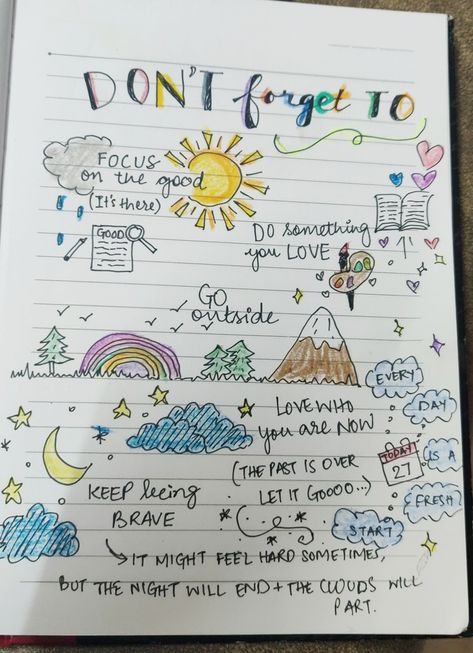 DON'T forget TO
FOCUS
on the good
(It's there)
GOOD
DO something
you LOVE
GO
outside
LOVE WHO
you are NOW
(THE PAST IS OVER
LET IT GOOOO...)
EVERY
DAY
IS A
FRESH
START
TODAY
27
KEEP being
BRAVE
IT MIGHT FEEL HARD SOMETIMES,
BUT THE NIGHT WILL END + THE CLOUDS WILL
PART.